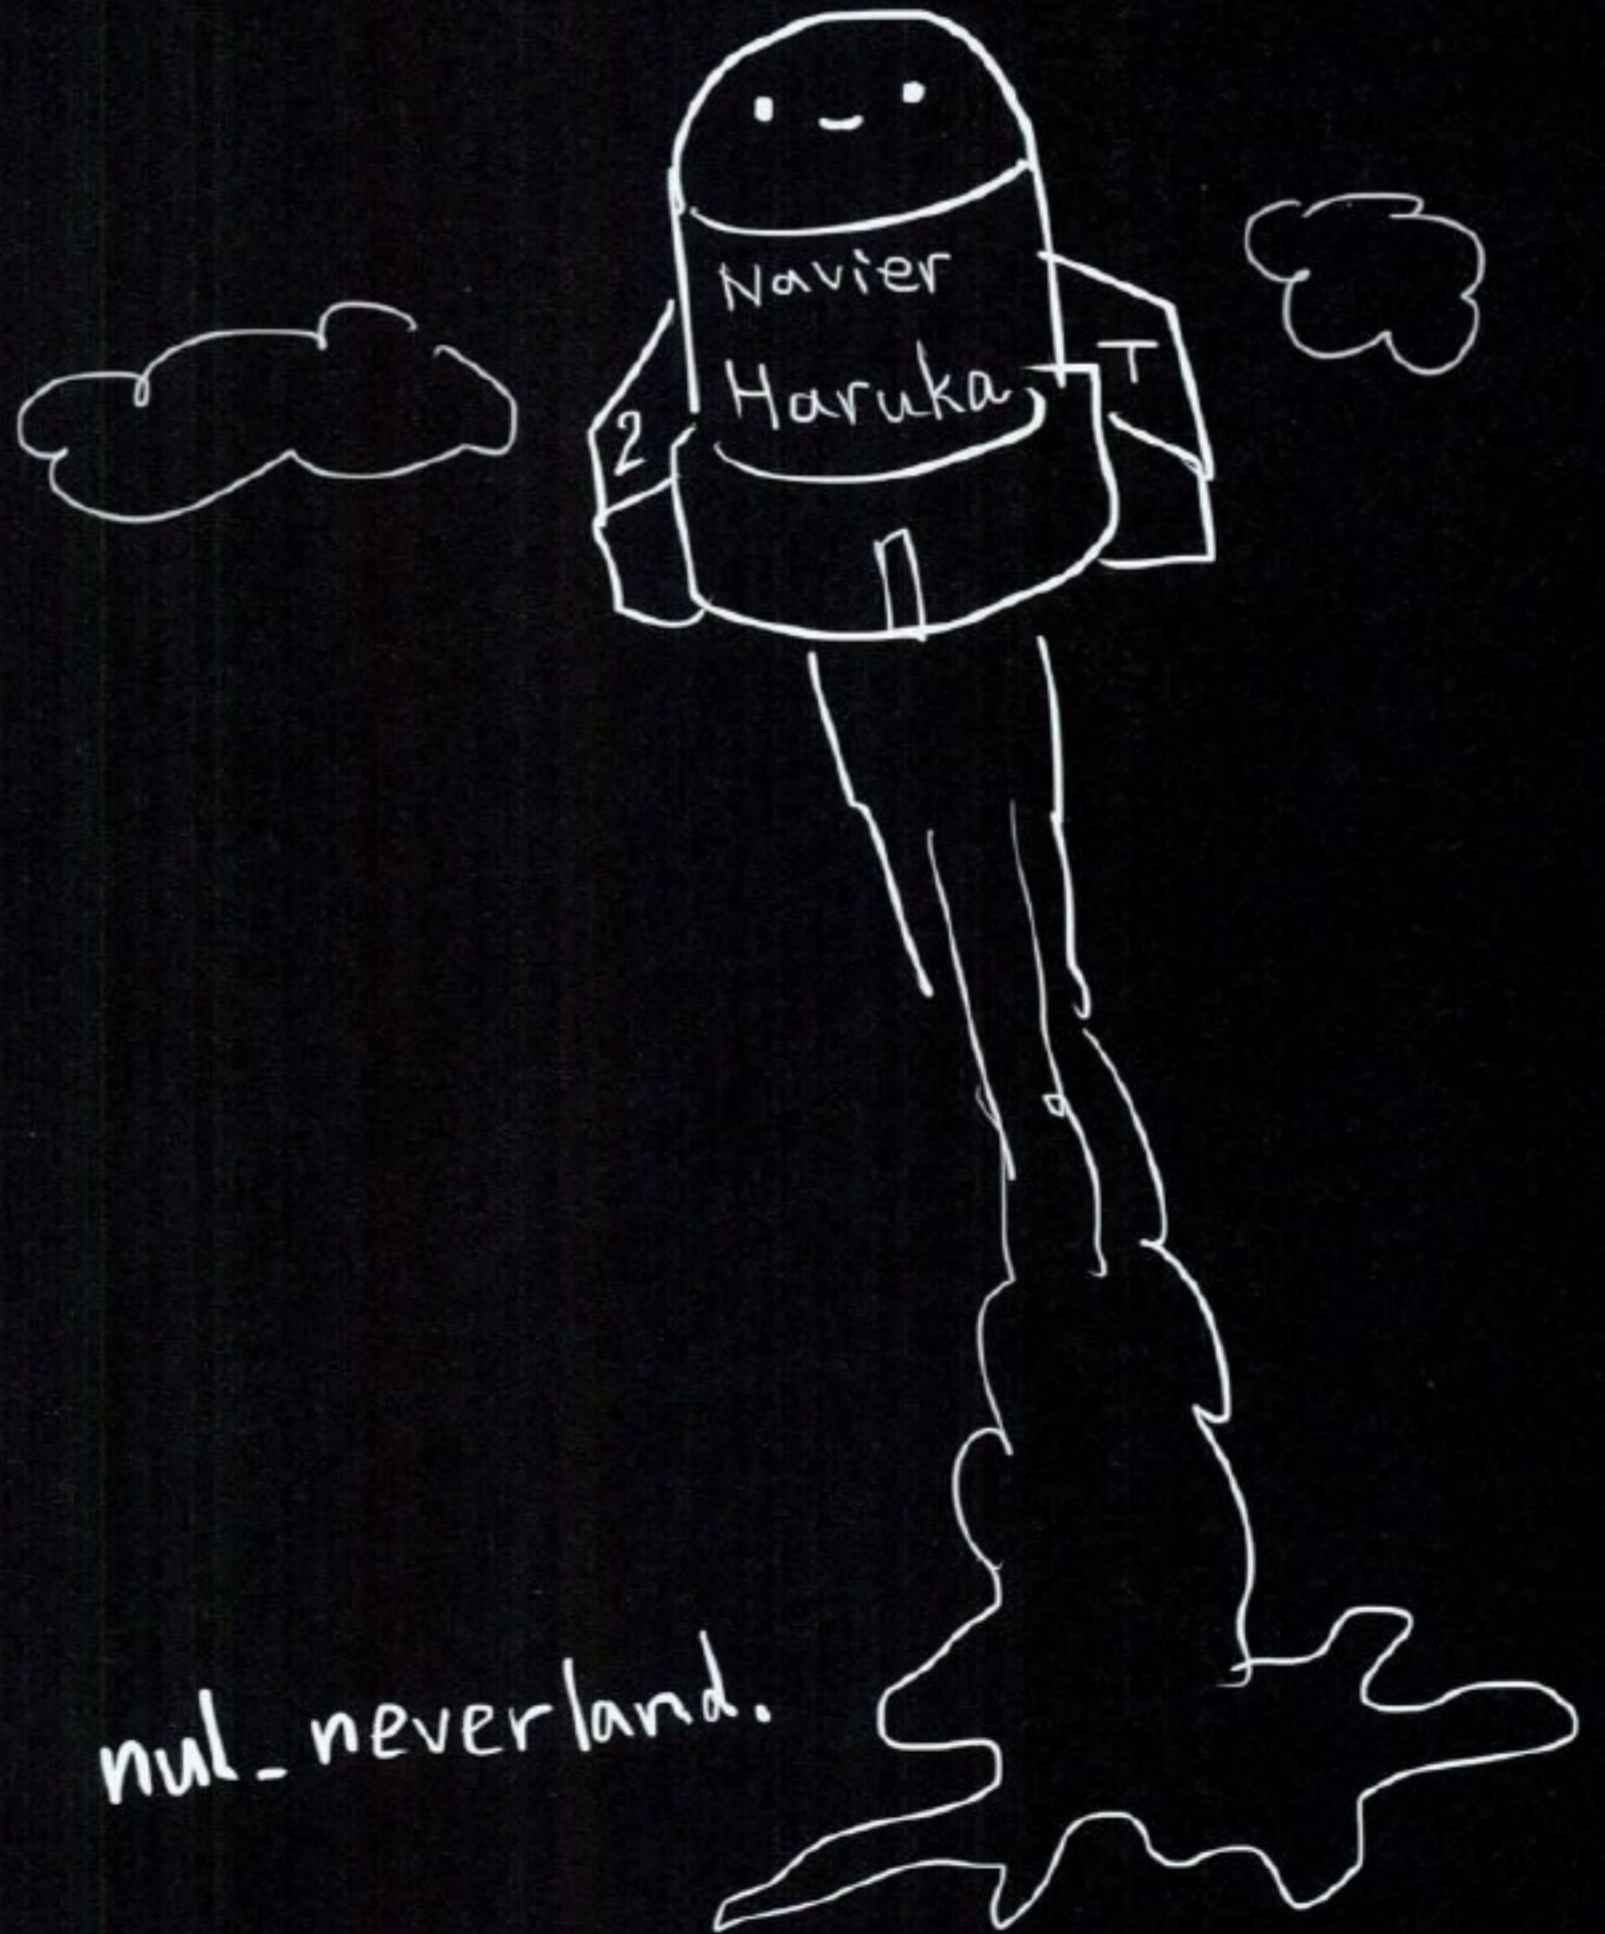 Navier
Haruka
2
T
nul_neverland.